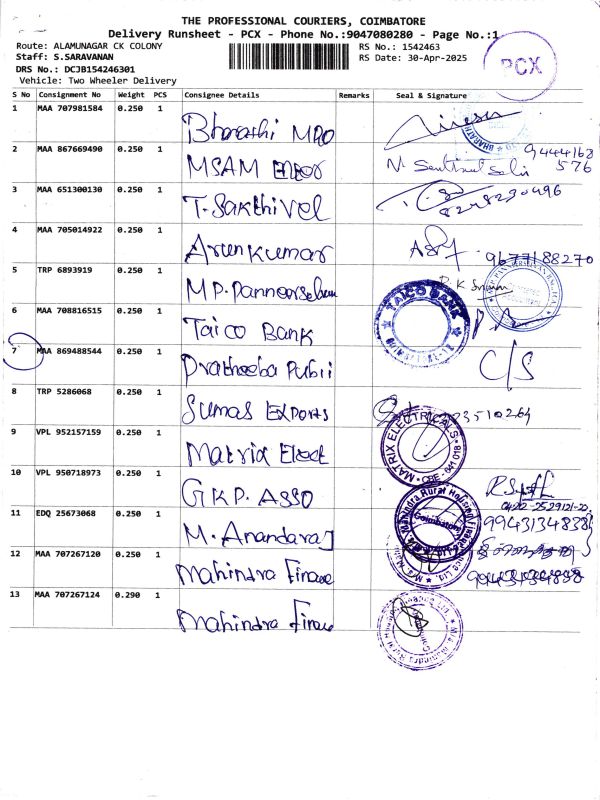 THE PROFESSIONAL COURIERS, COIMBATORE
Delivery Runsheet - PCX - Phone No.:9047080280 - Page No.:1
Route: ALAMUNAGAR CK COLONY
RS No.: 1542463
Staff: S.SARAVANAN
RS Date: 30-Apr-2025
DRS No.: DCJB154246301
Vehicle: Two Wheeler Delivery
PCX
S No Consignment No Weight PCS Consignee Details Remarks Seal & Signature
1 MAA 707981584 0.250 1 Bharathi MRO
2 MAA 867669490 0.250 1 MSAM 9444168
576
3 MAA 651300130 0.250 1 T. Sakthivel 8248230496
4 MAA 705014922 0.250 1 Arunkumar 9677188270
5 TRP 6893919 0.250 1 M.P.
6 MAA 708816515 0.250 1 Taico Bank TAICO BANK
7 MAA 869488544 0.250 1 Pratheeba C/S
8 TRP 5286068 0.250 1 Sumas Exports
9 VPL 952157159 0.250 1 Matrix Elect MATRIX ELECTRICALS CBE - 641 018
10 VPL 950718973 0.250 1 G.K.P. ASSO
11 EDQ 25673068 0.250 1 M. Anandaraj 9943134838
12 MAA 707267120 0.250 1 Mahindra Finance
13 MAA 707267124 0.290 1 Mahindra Finance